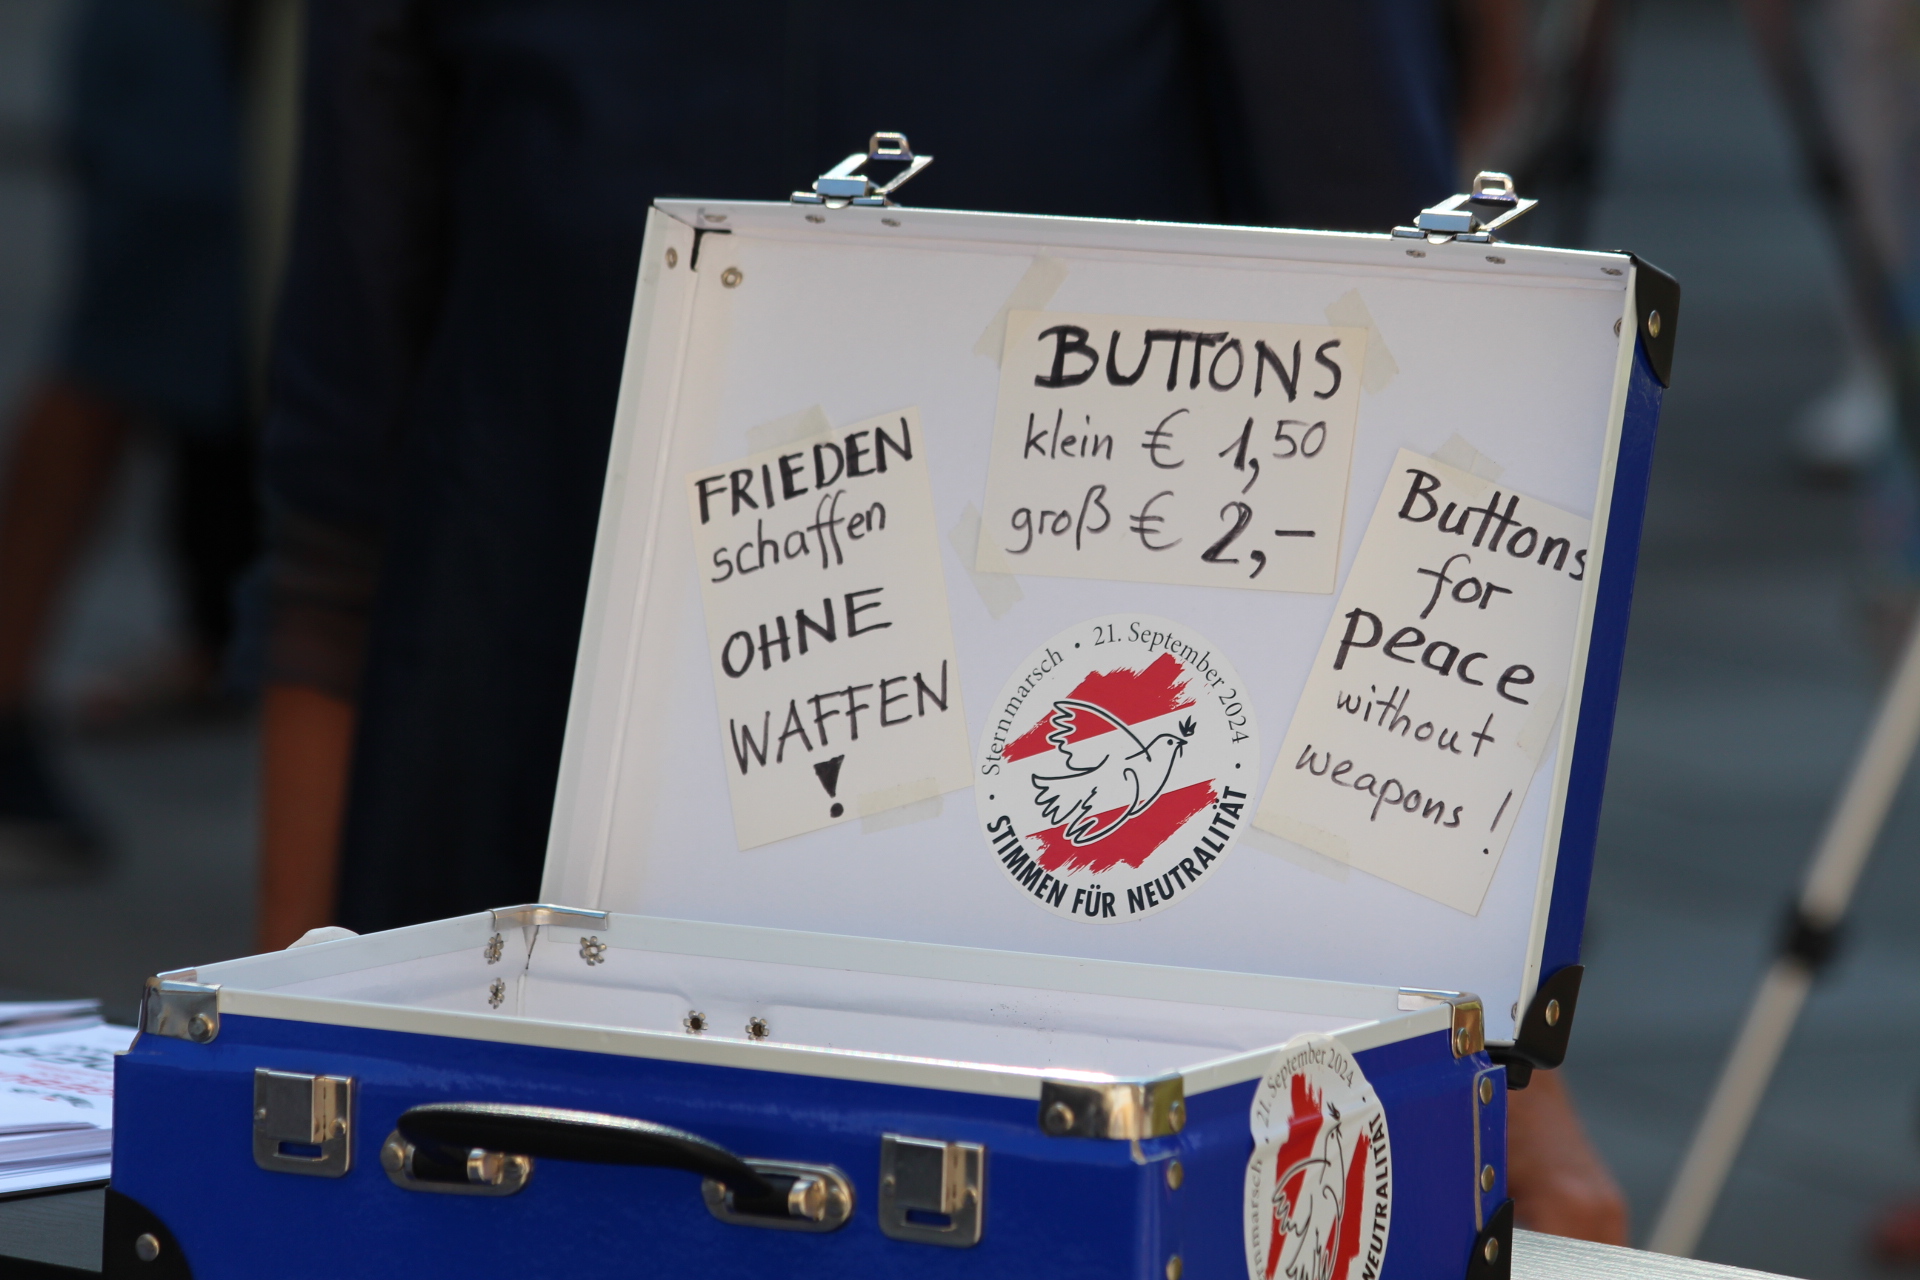 BUTTONS
klein € 1,50
groß € 2,-
FRIEDEN
schaffen
OHNE
WAFFEN
!
Buttons
for
peace
without
weapons!
• Sternmarsch • 21. September 2024 •
STIMMEN FÜR NEUTRALITÄT
21. September 2024
NEUTRALITÄT